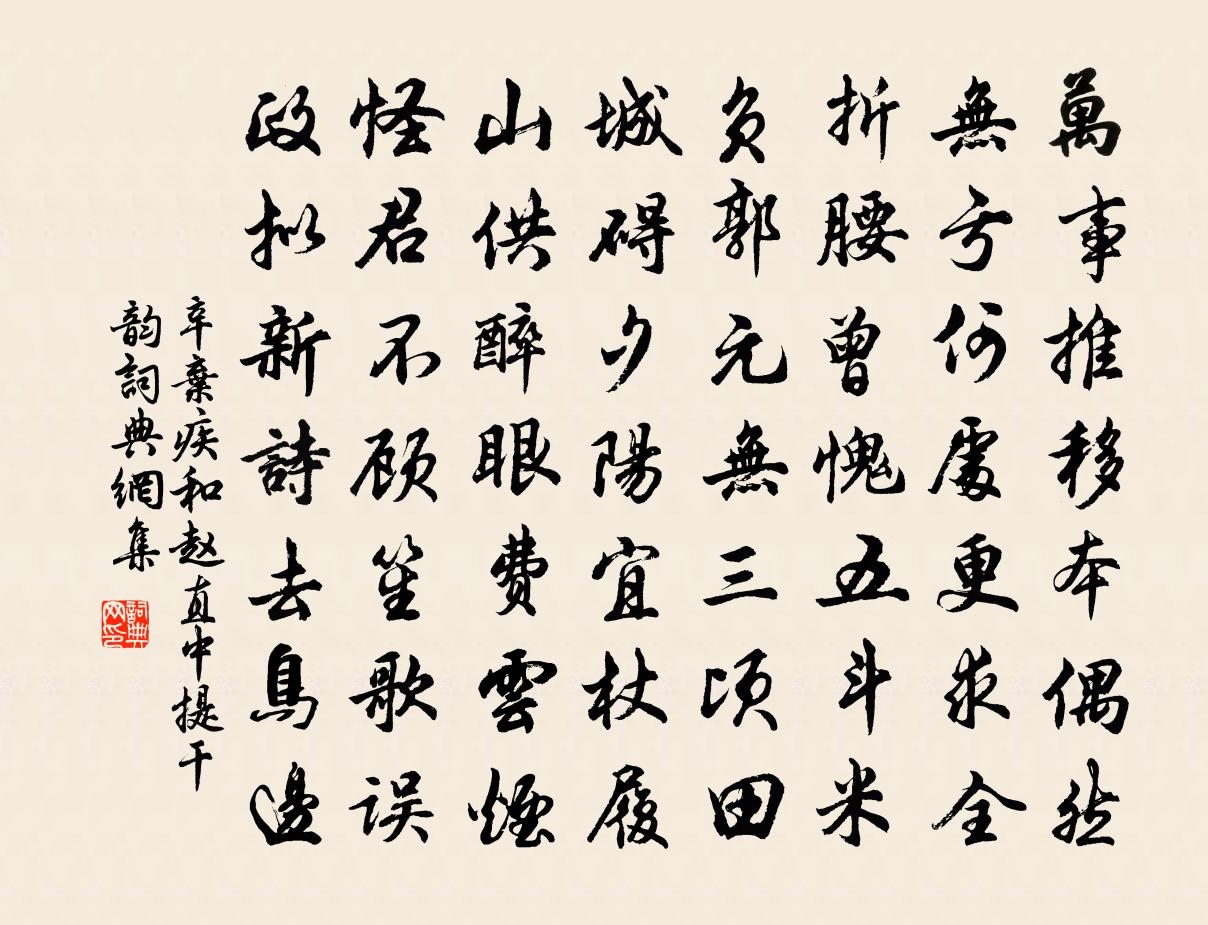 萬事推移本偶然
無亏何處更求全
折腰曾愧五斗米
负郭元無三頃田
城碍夕陽宜杖履
山供醉眼費雲煙
怪君不顾笙歌误
政拟新詩去鳥邊
辛棄疾和赵直中提干
韵詞典網集
詞典
网印